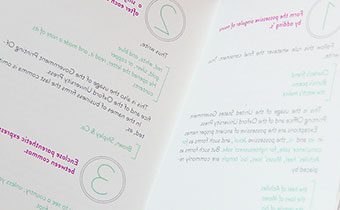 1
Form the possessive singular of nouns
by adding 's.
Follow this rule whatever the final consonant. Thus
write,
Charles's friend
Burns's poems
the witch's malice
This is the usage of the United States Government
Printing Office and of the Oxford University Press.
Exceptions are the possessive of ancient proper names
in -es and -is,
sake, for righteousness' sake. But such forms as
Achilles' heel, Moses' laws, Isis' temple are commonly re-
placed by
the heel of Achilles
the laws of Moses
2
after each
Thus write,
red, white, and blue
This is also the usage of the Government Printing Of-
fice and of the Oxford University Press.
In the names of business firms the last comma is omit-
ted, as,
Brown, Shipley & Co.
3
Enclose parenthetic expres
between commas.